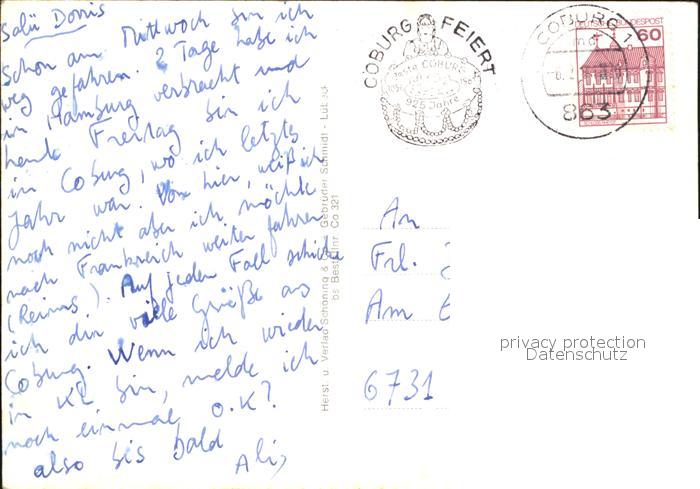 Salü Doris
Schon am Mittwoch bin ich
weg gefahren. 2 Tage habe ich
in Hamburg verbracht und
heute Freitag bin ich
in Coburg, wo ich letztes
Jahr war. Von hier, weiß ich
noch nicht aber ich möchte
nach Frankreich weiter fahren
(Reims). Auf jeden Fall schicke
ich dir viele Grüße aus
Coburg. Wenn ich wieder
in KL bin, melde ich
noch einmal O.K?
also bis bald
Ali
Herst. u. Verlag Schöning & Gebrüder Schmidt - Lübeck
Bestellnr. Co 321
COBURG FEIERT
COBURG
925 Jahre
COBURG 1
863
DEUTSCHE BUNDESPOST
60
An
Frl.
Am
6731
privacy protection
Datenschutz